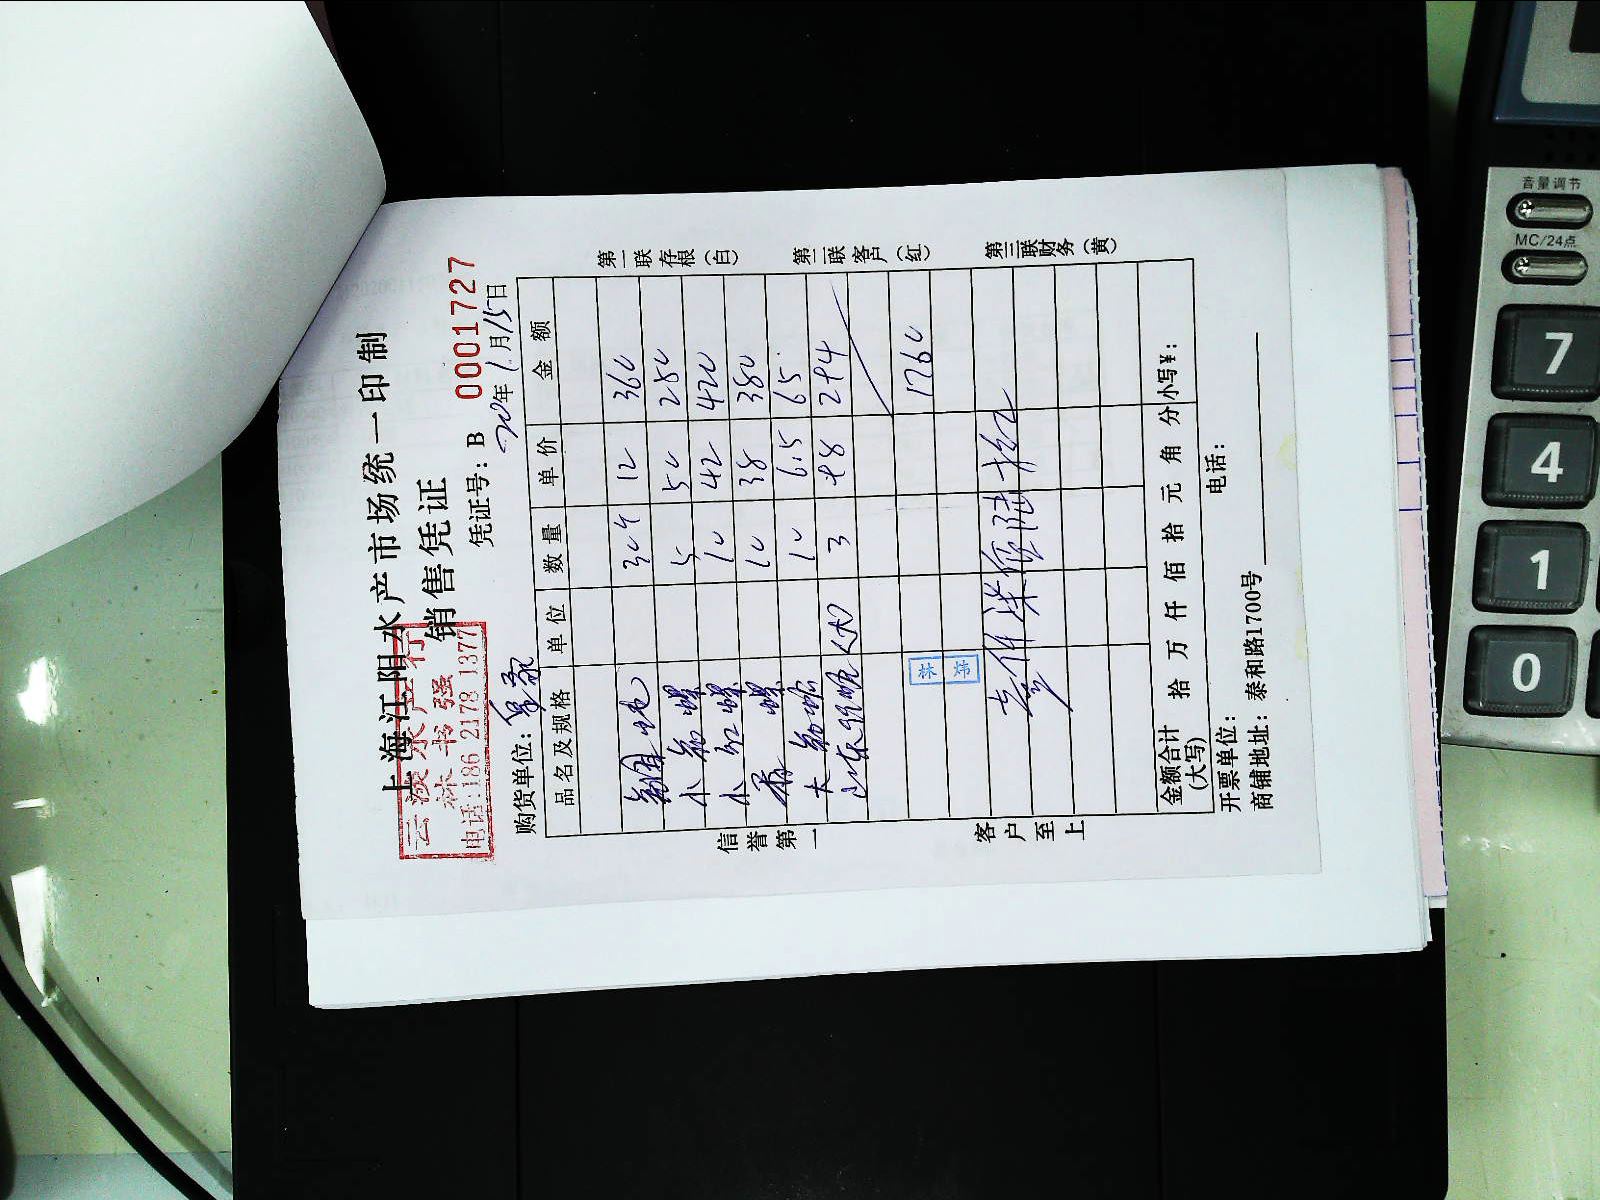 上海江阳水产市场统一印制
销售凭证
云波水产行
林书强
电话:186 2178 1377
凭证号: B 0001727
购货单位:
20年1月15日
品名及规格 单位 数量 单价 金额
30个 12 360
小 5 50 250
小红螺 10 42 420
螺 10 38 380
大 10 6.5 65.
山东 3
1760
壹仟柒佰陆拾
金额合计(大写) 拾 万 仟 佰 拾 元 角 分 小写¥:
开票单位: 电话:
商铺地址: 泰和路1700号
信誉第一
客户至上
第一联存根(白)
第二联客户(红)
第三联财务(黄)
音量调节
MC/24点
7
4
1
0